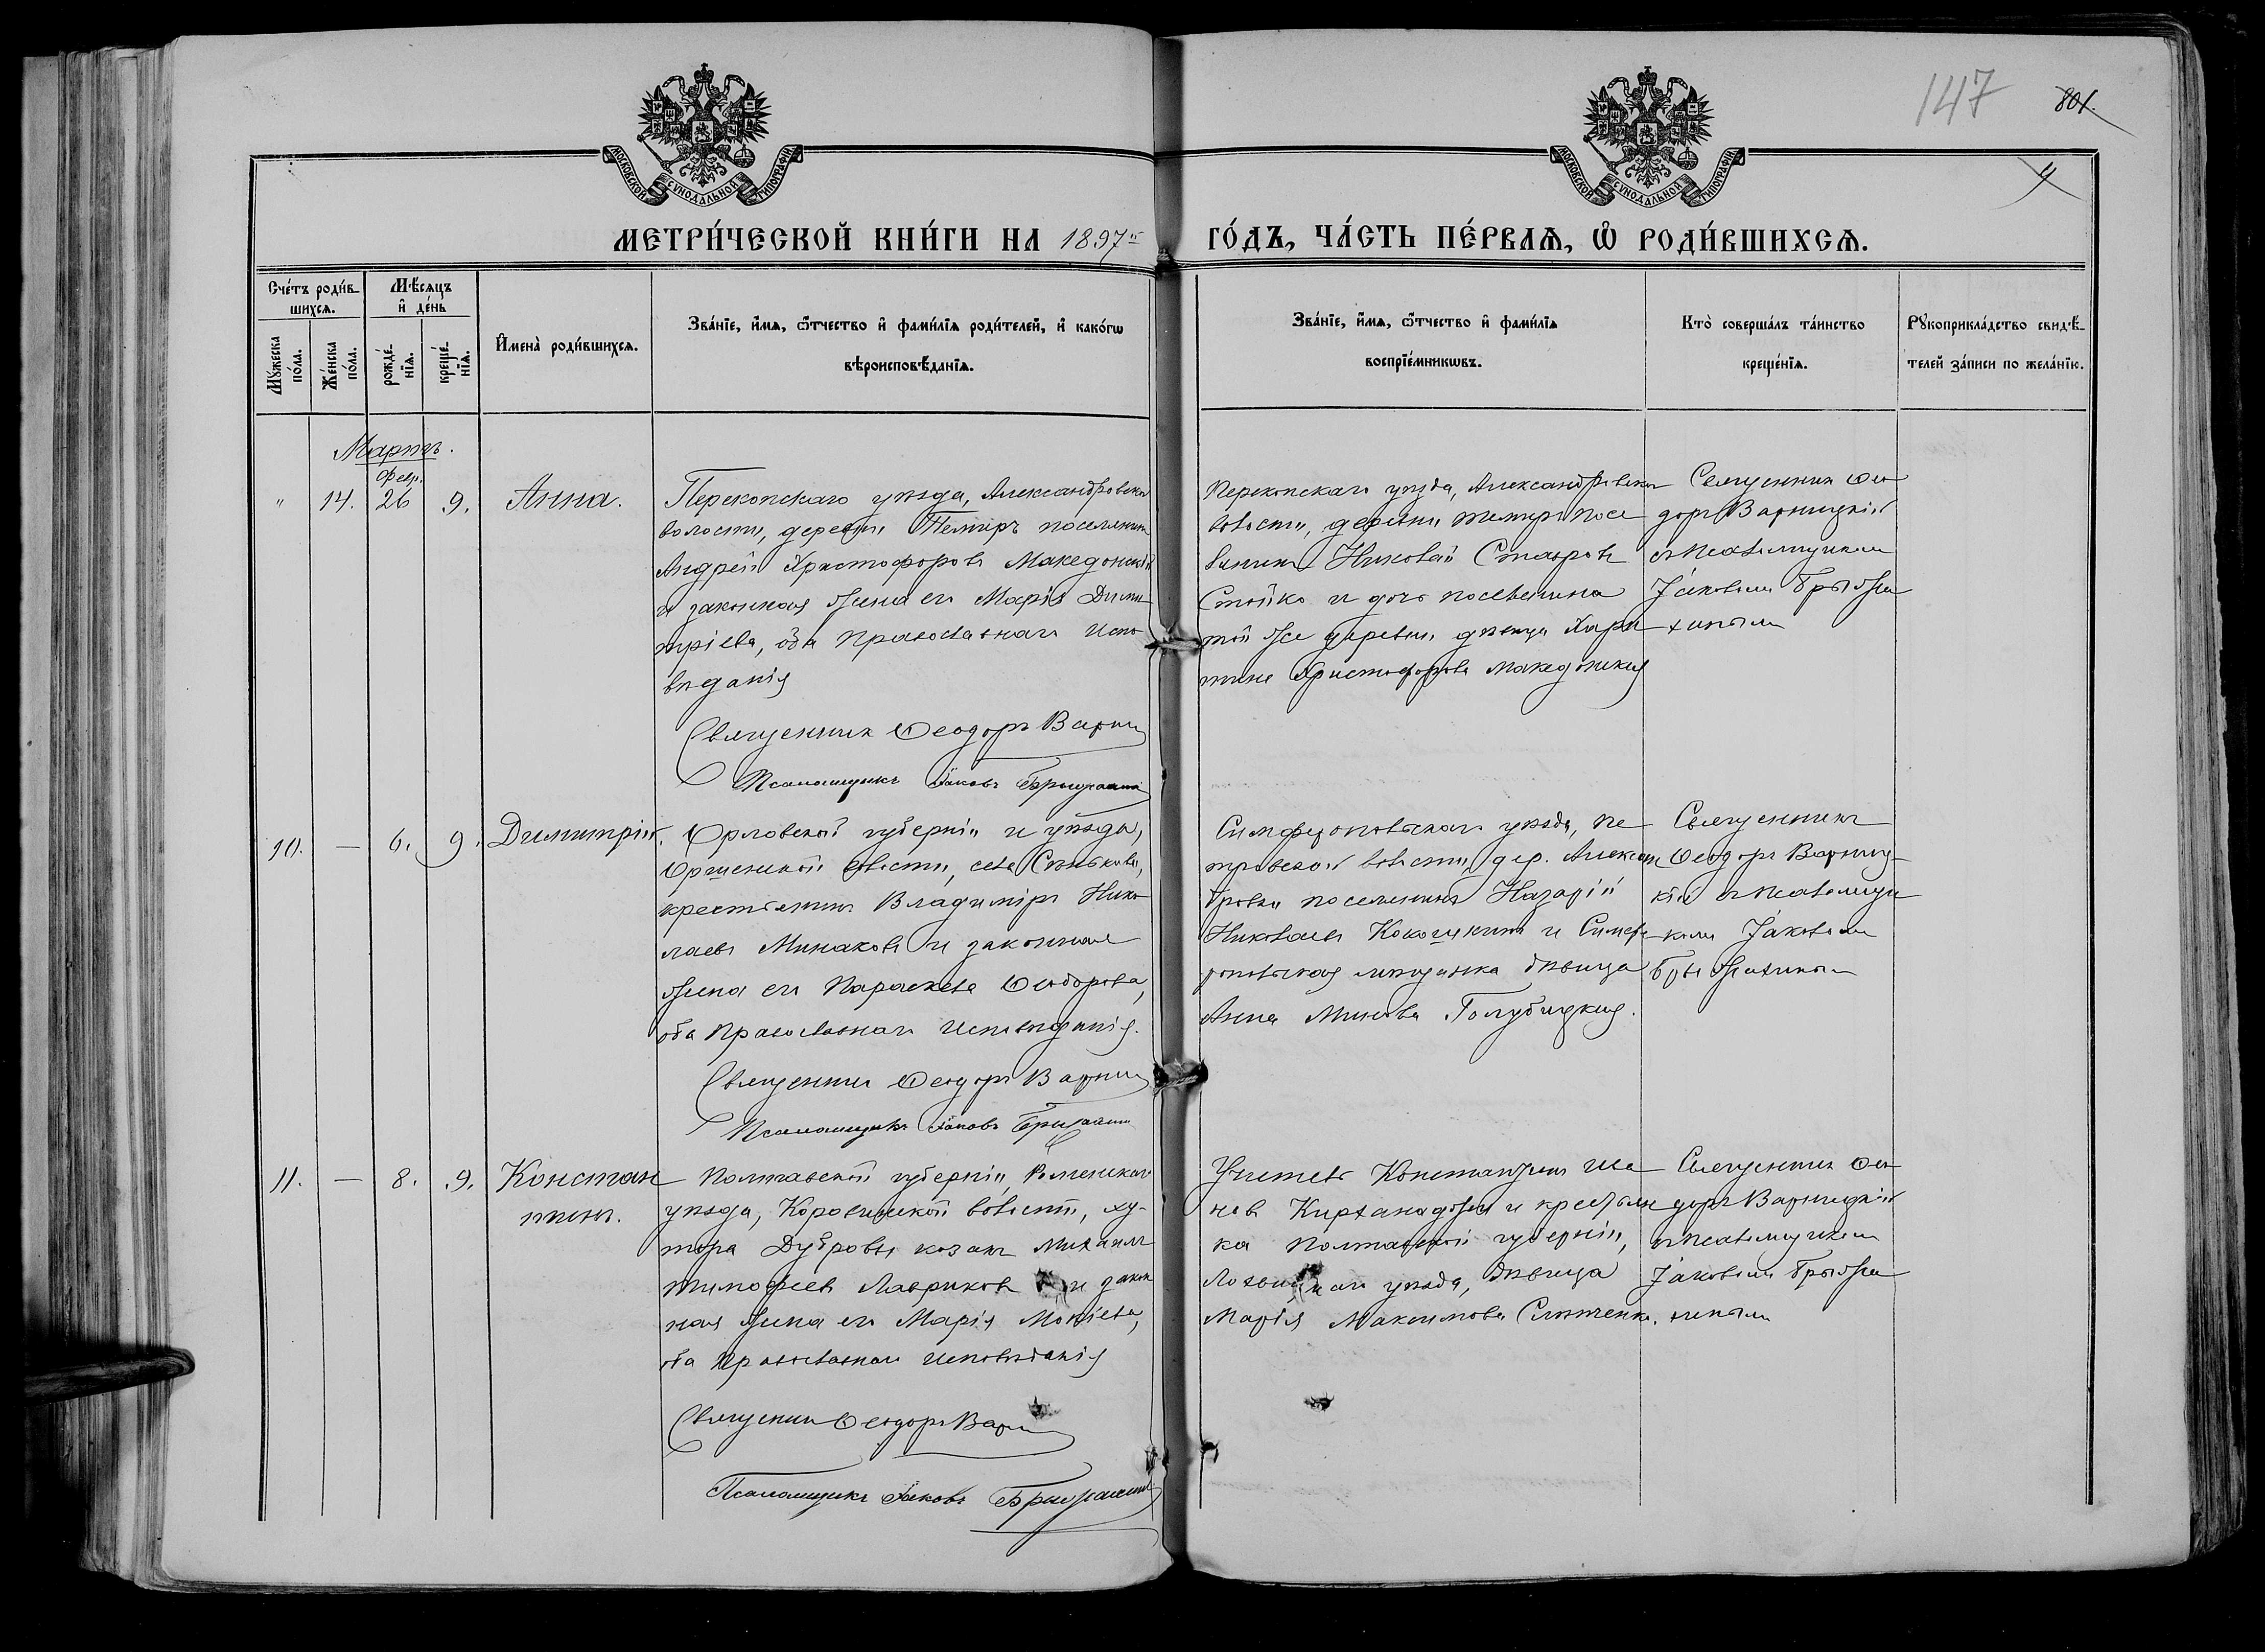 147
801.
4
МОСКОВСКОЙ СУНОДАЛЬНОЙ ТИПОГРАФІИ
МОСКОВСКОЙ СУНОДАЛЬНОЙ ТИПОГРАФІИ
МЕТРИ́ЧЕСКОЙ КНИ́ГИ НА 1897й ГО́ДЪ, ЧА́СТЬ ПЕ́РВАѦ, Ѡ РОДИ́ВШИХСѦ.
Сче́тъ роди́в-
шихсѧ.
Мꙋ́жеска
по́ла.
Же́нска
по́ла.
Мѣ́сѧцъ
и҆ де́нь
рожде́-
нїѧ.
креще́-
нїѧ.
И҆мена̀ роди́вшихсѧ.
Зва́нїе, и҆́мѧ, ѻ҆́тчество и҆ фами́лїѧ роди́телей, и҆ како́гѡ
вѣроисповѣ́данїѧ.
Зва́нїе, и҆́мѧ, ѻ҆́тчество и҆ фами́лїѧ
воспрїе́мникѡвъ.
Кто̀ соверша́лъ та́инство
креще́нїѧ.
Рꙋкоприкла́дство свидѣ́-
телей за́писи по жела́нїю.
Мартъ.
Февр.
" 14. 26 9. Анна.
Перекопскаго уѣзда, Александровской
волости, деревни Темиръ поселянинъ
Андрей Христофоровъ Македонскій
и законная жена его Марія Дими
тріева, оба Православнаго испо
вѣданія
Священникъ Ѳеодоръ Варниц
Псаломщикъ Іаковъ Брыжахинъ
Перекопскаго уѣзда, Александровской
волости, деревни Темиръ посе
лянинъ Николай Ставровъ
Стойко и дочь поселянина
той же деревни дѣвица Хари
тина Христофорова Македонская
Священникъ Ѳео
доръ Варницкій
съ псаломщикомъ
Іаковомъ Брыжа
хинымъ
10. — 6. 9. Димитрій.
Орловской губерніи и уѣзда,
волости, села
крестьянинъ Владиміръ Нико
лаевъ Минаковъ и законная
жена его Параскева Ѳеодорова,
оба Православнаго исповѣданія.
Священникъ Ѳеодоръ Варниц
Псаломщикъ Іаковъ Брыжахинъ
Симферопольскаго уѣзда, Пе
тровской волости, дер. Алексан
дровки поселянинъ Назарій
Николаевъ Кокошкинъ и Симфе
ропольская мѣщанка дѣвица
Анна Минова Голубицкая.
Священникъ
Ѳеодоръ Варниц-
кій съ псаломщи
комъ Іаковомъ
Брыжахинымъ
11. — 8. 9. Констан
тинъ.
Полтавской губерніи, Роменскаго
уѣзда, Коровинской волости, ху-
тора Дубровы козакъ Михаилъ
Тимофеевъ Лавриковъ и закон
ная жена его Марія Мокіева,
оба Православнаго исповѣданія
Священникъ Ѳеодоръ Варниц
Псаломщикъ Іаковъ Брыжахинъ
Учитель Константинъ
и крестьян
ка Полтавской губерніи,
Лохвицкаго уѣзда, дѣвица
Марія Максимова
Священникъ Ѳео
доръ Варницкій
съ псаломщикомъ
Іаковомъ Брыжа
хинымъ